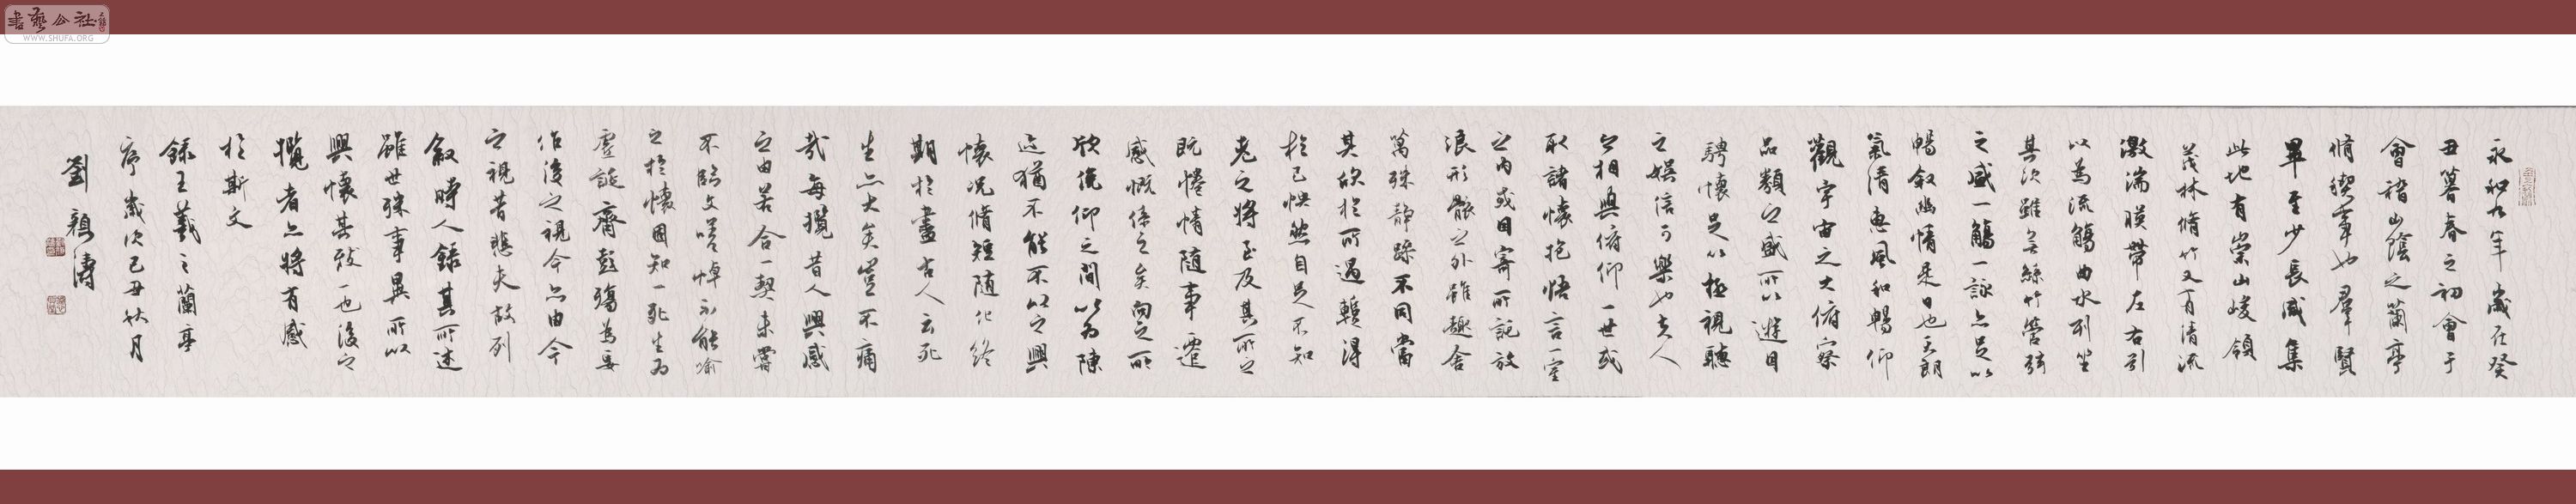 書藝公社
WWW.SHUFA.ORG
永和九年歲在癸
丑暮春之初會于
會稽山陰之蘭亭
脩禊事也羣賢
畢至少長咸集
此地有崇山峻領
茂林脩竹又有清流
激湍暎帶左右引
以為流觴曲水列坐
其次雖無絲竹管弦
之盛一觴一詠亦足以
暢叙幽情是日也天朗
氣清惠風和暢仰
觀宇宙之大俯察
品類之盛所以遊目
騁懷足以極視聽
之娛信可樂也夫人
之相與俯仰一世或
取諸懷抱悟言一室
之內或因寄所託放
浪形骸之外雖趣舍
萬殊靜躁不同當
其欣於所遇輒得
於己怏然自足不知
老之將至及其所之
既惓情隨事遷
感慨係之矣向之所
欣俛仰之間以為陳
迹猶不能不以之興
懷況脩短隨化終
期於盡古人云死
生亦大矣豈不痛
哉每攬昔人興感
之由若合一契未嘗
不臨文嗟悼不能喻
之於懷固知一死生為
虛誕齊彭殤為妄
作後之視今亦由今
之視昔悲夫故列
叙時人錄其所述
雖世殊事異所以
興懷其致一也後之
攬者亦將有感
於斯文
錄王羲之蘭亭
序歲次己丑秋月
劉 濤